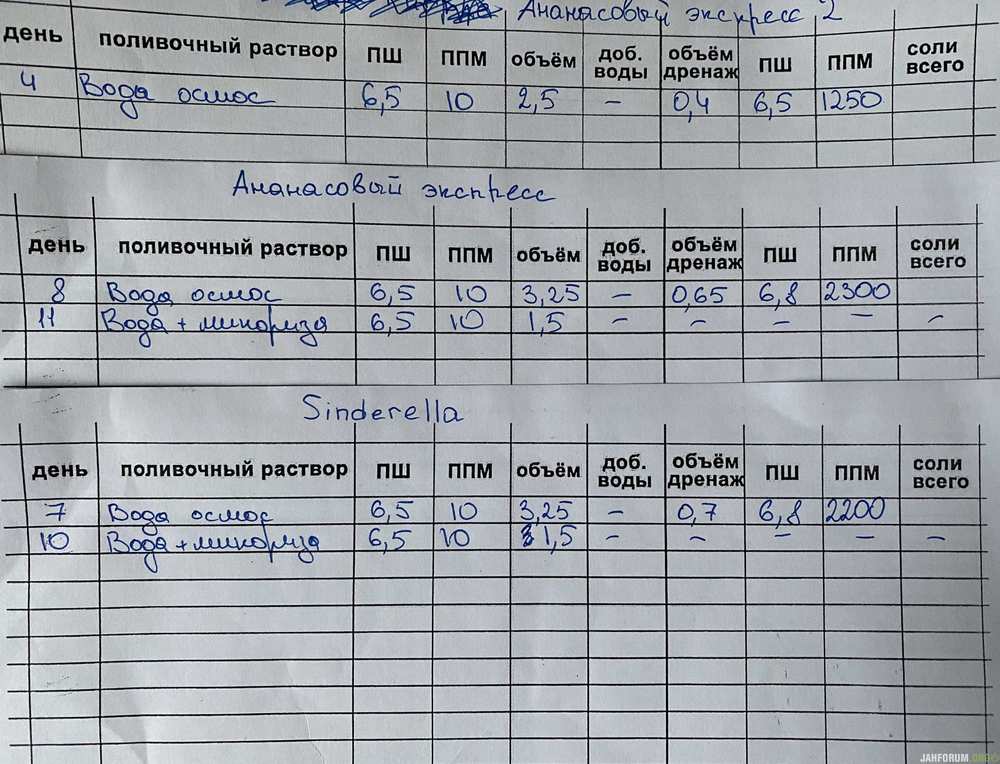 Ананасовый экспресс 2
день поливочный раствор ПШ ППМ объём доб. воды объём дренаж ПШ ППМ соли всего
4 Вода осмос 6,5 10 2,5 – 0,4 6,5 1250
Ананасовый экспресс
день поливочный раствор ПШ ППМ объём доб. воды объём дренаж ПШ ППМ соли всего
8 Вода осмос 6,5 10 3,25 – 0,65 6,8 2300
11 Вода + микориза 6,5 10 1,5 – – – – –
Sinderella
день поливочный раствор ПШ ППМ объём доб. воды объём дренаж ПШ ППМ соли всего
7 Вода осмос 6,5 10 3,25 – 0,7 6,8 2200
10 Вода + микориза 6,5 10 1,5 – – – – –
JAHFORUM.ORG